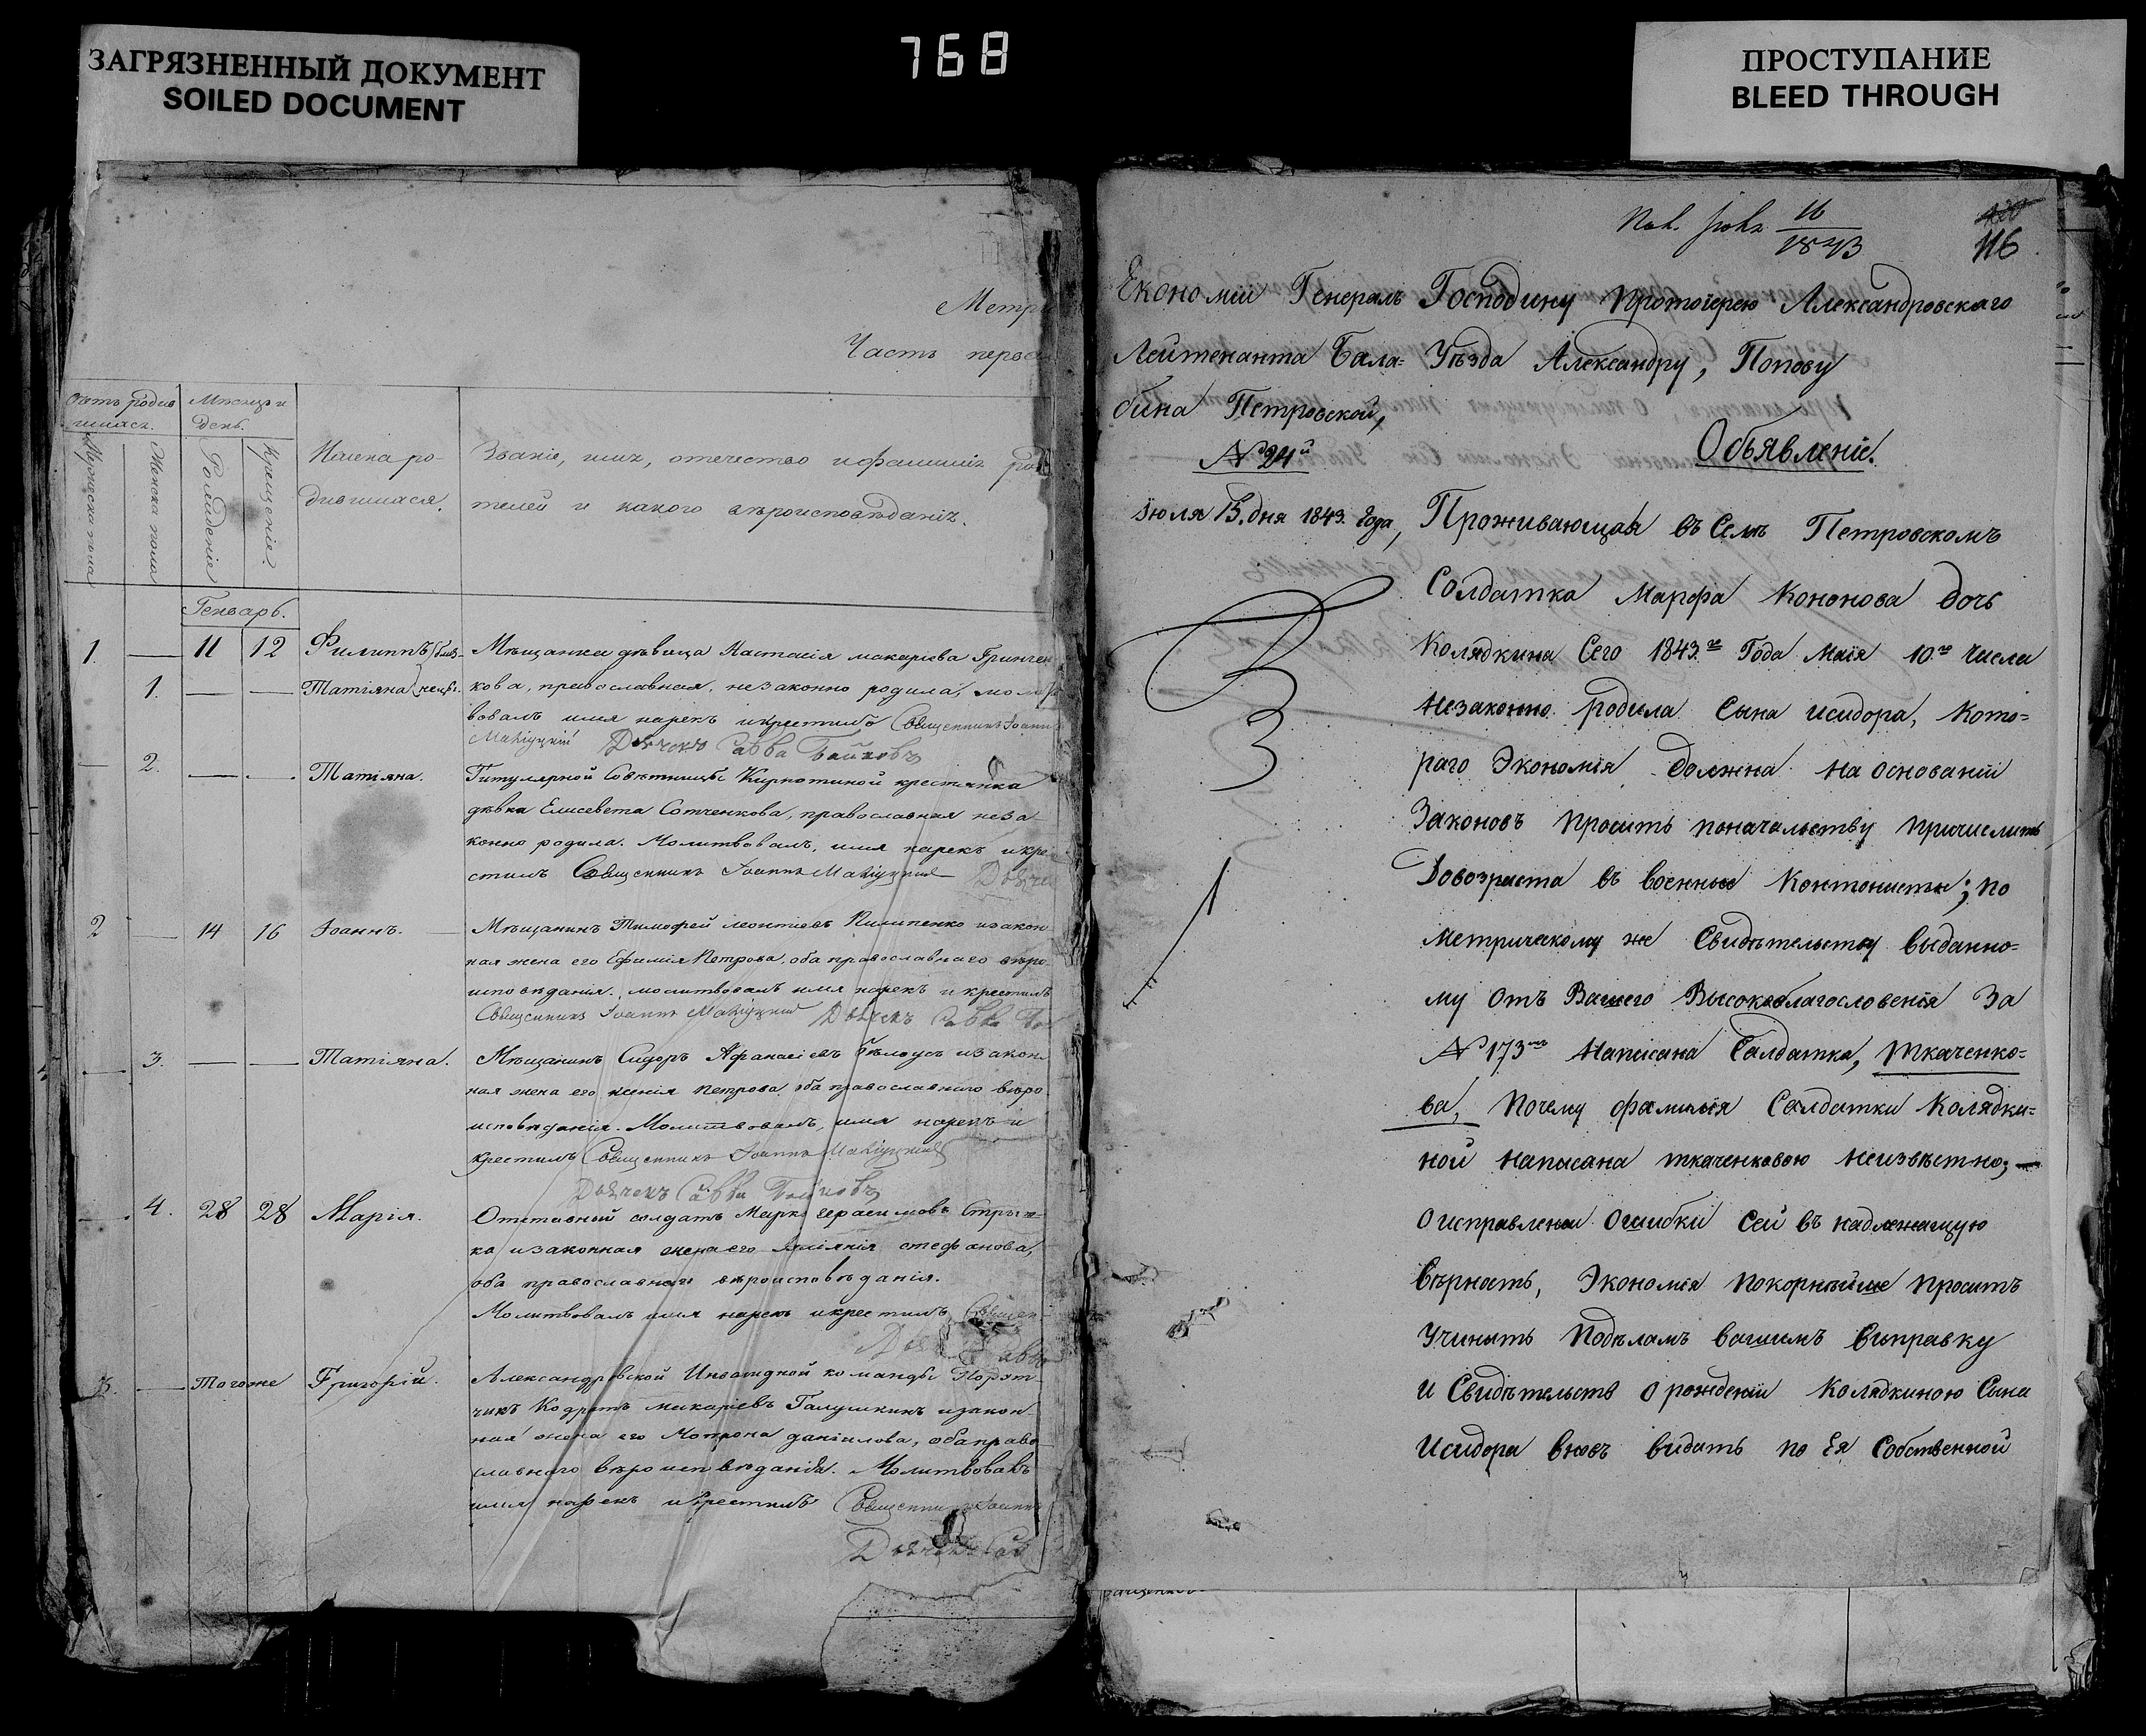 ЗАГРЯЗНЕННЫЙ ДОКУМЕНТ
SOILED DOCUMENT
768
ПРОСТУПАНИЕ
BLEED THROUGH
Метри
Часть перва
Счетъ родив
шихся.
Мѣсяцъ и
день.
Мужеска пола
Женска пола
Рожденіе
Крещеніе.
Имена ро-
дившихся.
Званіе, имя, отечество и фамилія ро
телей и какого вѣроисповѣданія.
Генварь.
1. 11 12 Филиппъ Мѣщанка дѣвица Настасія макарьева Гринчен
1. Татіяна кова, православная, незаконно родила, мол
вовалъ имя нарекъ и крестилъ Священникъ Іоаннъ
Дьячекъ Савва Байковъ
2. Татіяна. Титулярной Совѣтницы крестянка
дѣвка Елисевета Сотченкова, православная неза
конно родила. Молитвовалъ, имя нарекъ и кре
стилъ Священникъ Іоаннъ
2 14 16 Іоаннъ. Мѣщанинъ Тимофей леонтіевъ Пилипенко и закон
ная жена его Ефимія Петрова, оба православнаго вѣро
исповѣданія. молитвовалъ имя нарекъ и крестилъ
Священникъ Іоаннъ Дьячекъ Савва
3. Татіяна. Мѣщанинъ Сидоръ Афанасіевъ бѣлоусъ и закон
ная жена его ксенія петрова оба православнаго вѣро
исповѣданія. Молитвовалъ, имя нарекъ и
крестилъ Священникъ Іоаннъ
Дьячекъ Савва Байковъ
4. 28 28 Марія. Отставный солдатъ Марко герасимовъ
ко и законная жена его стефанова,
оба православнаго вѣроисповѣданія.
Молитвовалъ имя нарекъ и крестилъ Священ
3. Тогоже Григорій. Александровской Инвалидной команды
Кодратъ макаріевъ Галушкинъ и закон
ная жена его Мотрона данілова, оба право
славнаго вѣроисповѣданія. Молитвовалъ
имя нарекъ и крестилъ Священникъ Іоаннъ
Дьячекъ Сав
16
1843
116
Економіи Генералъ
Лейтенанта Бала=
бина Петровской,
№ 24й
Іюля 15. дня 1843. Года,
Господину Протоіерею Александровскаго
Уѣзда Александру, Попову
Обьявленіе.
Проживающая въ Селѣ Петровскомъ
Солдатка Марфа Кононова дочь
Колядкина Сего 1843го Года Маія 10го числа
Незаконно родила Сына исидора, кото=
раго Экономія должна на основаніи
Законовъ просить поначальству причислить
Довозраста въ военные Контонисты; по
метрическому же Свидѣтельству выданно=
му отъ Вашего Высокоблагословенія За
№ 173мъ Написана Салдатка, ткаченко=
ва, Почему фамилія Салдатки Колядки=
ной написана ткаченковою неизвѣстно;—
о исправленіи ошибки сей въ надлежащую
вѣрность, Экономія покорнѣйше проситъ
Учинить Подѣламъ вашимъ выправку
и Свидѣтельств о рожденіи Колядкиною Сына
Исидора вновь видать по Ея Собственной